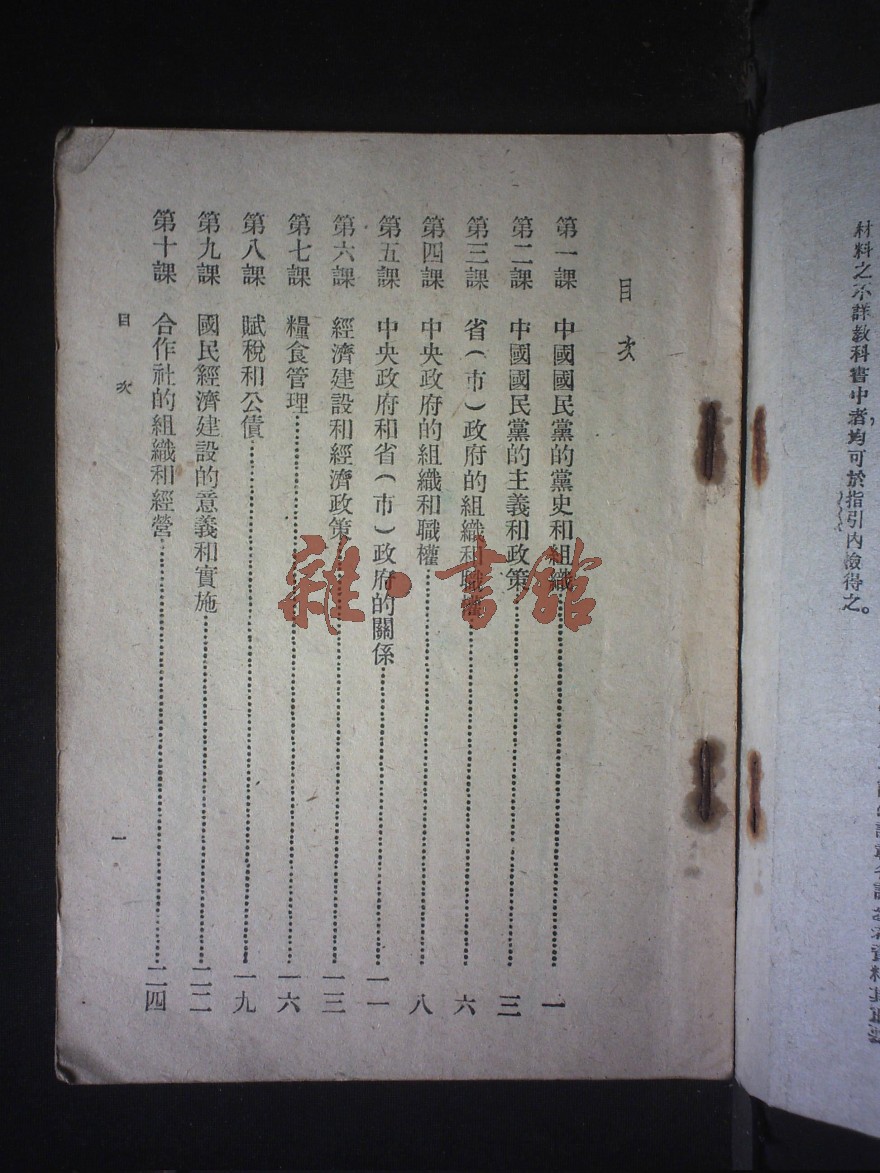 材料之不詳教科書中者,均可於指引內檢得之。
目次
第一課 中國國民黨的黨史和組織 一
第二課 中國國民黨的主義和政策 三
第三課 省(市)政府的組織和職權 六
第四課 中央政府的組織和職權 八
第五課 中央政府和省(市)政府的關係 一一
第六課 經濟建設和經濟政策 一三
第七課 糧食管理 一六
第八課 賦稅和公債 一九
第九課 國民經濟建設的意義和實施 二二
第十課 合作社的組織和經營 二四
目次 一
雜·書館